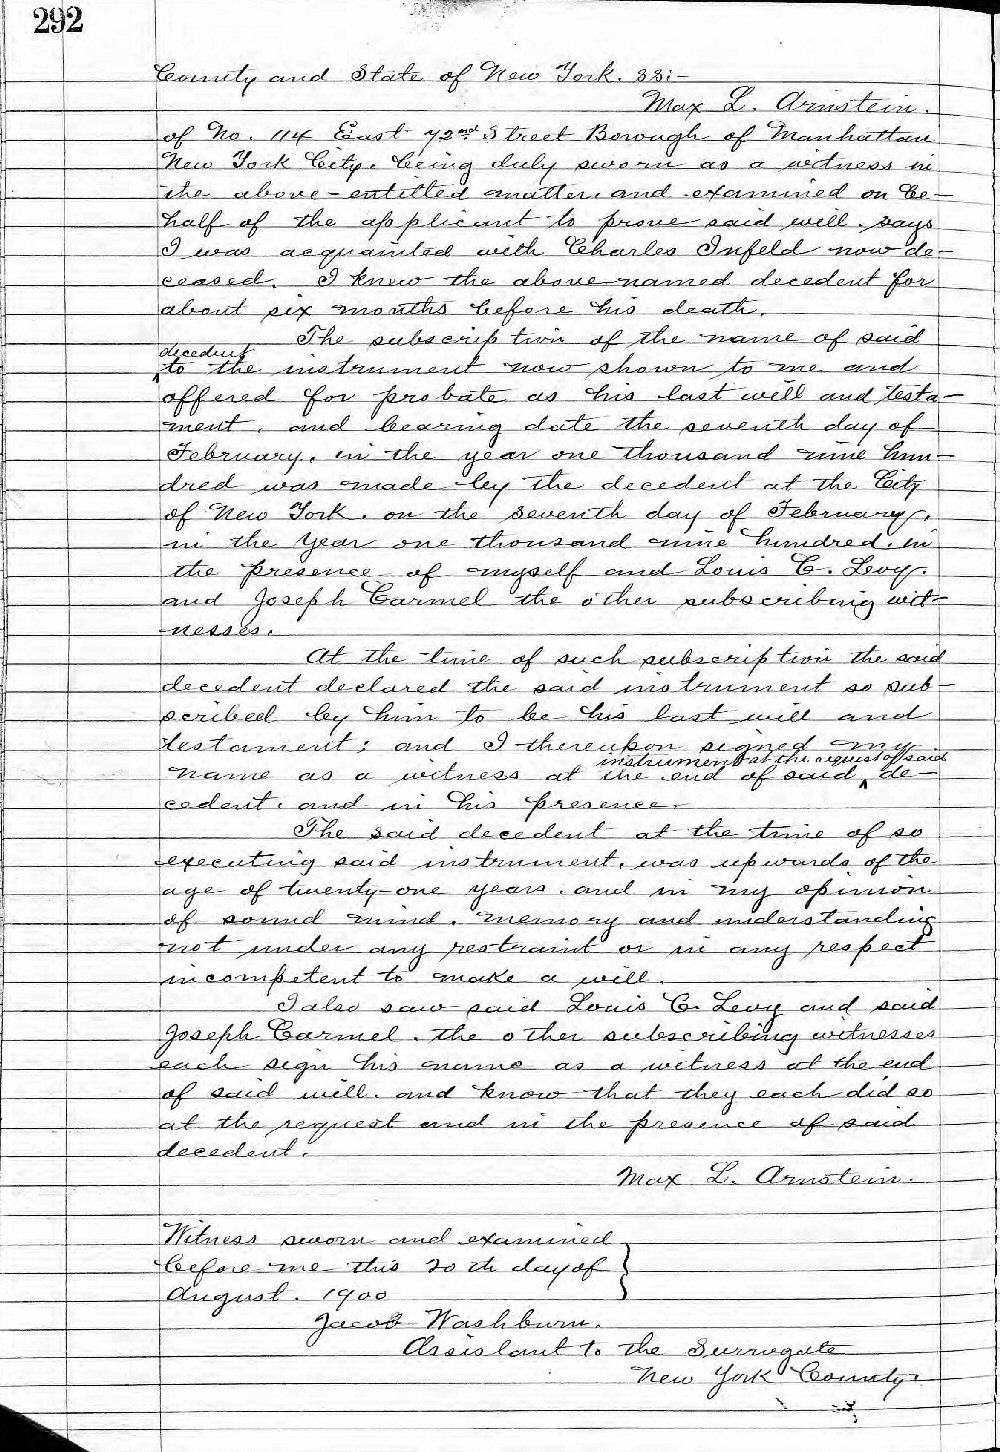 292
County and State of New York. SS:-
Max L. Arnstein.
of No. 114 East 72nd Street Borough of Manhattan
New York City. being duly sworn as a witness in
the above-entitled matter. and examined on be-
half of the applicant to prove said will. says
I was acquainted with Charles Infeld now de-
ceased. I knew the above-named decedent for
about six months before his death.
The subscription of the name of said
decedent
to the instrument now shown to me and
offered for probate as his last will and testa-
ment. and bearing date the seventh day of
February. in the year one thousand nine hun-
dred was made by the decedent at the City
of New York. on the seventh day of February,
in the year one thousand nine hundred. in
the presence of myself and Louis C. Levy.
and Joseph Carmel the other subscribing wit-
nesses.
At the time of such subscription the said
decedent declared the said instrument so sub-
scribed by him to be his last will and
testament; and I thereupon signed my
instrument at the request of said
name as a witness at the end of said de-
cedent. and in his presence.
The said decedent at the time of so
executing said instrument. was upwards of the
age of twenty-one years. and in my opinion.
of sound mind. memory and understanding
not under any restraint or in any respect
incompetent to make a will.
I also saw said Louis C. Levy and said
Joseph Carmel. the other subscribing witnesses
each sign his name as a witness at the end
of said will. and know that they each did so
at the request and in the presence of said
decedent.
Max L. Arnstein.
Witness sworn and examined
before me this 20th day of
August. 1900
Jacob Washburn.
Assistant to the Surrogate
New York County.